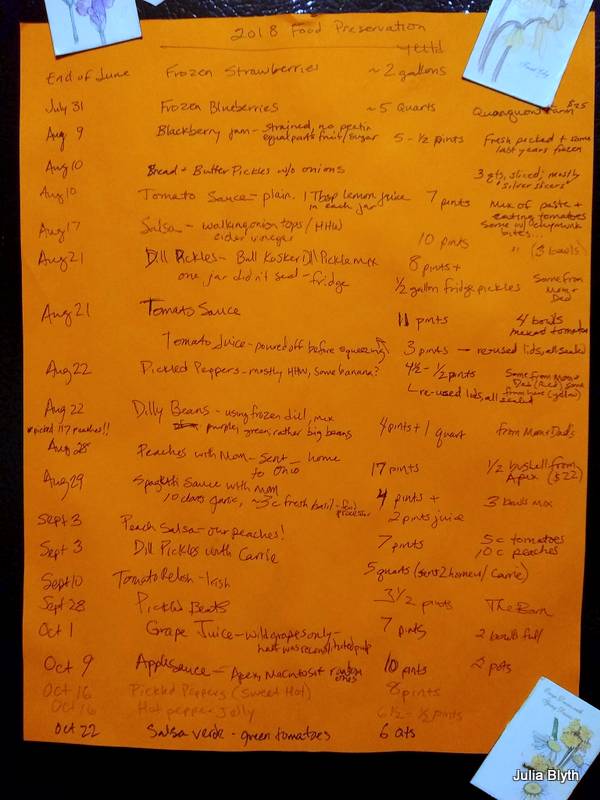 2018 Food Preservation
Yield
End of June Frozen Strawberries ~2 gallons
July 31 Frozen Blueberries ~5 Quarts $25
Aug 9 Blackberry jam - strained, no pectin 5 - 1/2 pints Fresh picked + some
equal parts fruit/sugar last years frozen
Aug 10 Bread + Butter Pickles w/o onions 3 qts, sliced; mostly
"silver slicers"
Aug 10 Tomato Sauce - plain, 1 Tbsp lemon juice 7 pints Mix of paste +
in each jar eating tomatoes
Aug 17 Salsa - walking onion tops / HHW 10 pints Some w/ chipmunk
cider vinegar bites...
Aug 21 Dill Pickles - Ball Kosher Dill Pickle mix 8 pints + " (3 bowls)
one jar didn't seal - fridge 1/2 gallon fridge pickles Some from
Mom +
Dad
Aug 21 Tomato Sauce 11 pints 4 bowls
mixed tomatoes
Tomato Juice - poured off before squeezing 3 pints - re-used lids, all sealed
Aug 22 Pickled Peppers - mostly HHW, some banana? 4 1/2 - 1/2 pints Some from Mom +
Dad (Red) some
re-used lids, all sealed from here (yellow)
Aug 22 Dilly Beans - using frozen dill, mix 4 pints + 1 quart From Mom + Dads
*picked 117 peaches!! purple, green, rather big beans
Aug 28 Peaches with Mom - Sent home 17 pints 1/2 bushell from
to Ohio Apex ($22)
Aug 29 Spaghetti Sauce with Mom 4 pints + 3 bowls mix
10 cloves garlic, ~3c fresh basil - food
processor 2 pints juice
Sept 3 Peach Salsa - our peaches! 7 pints 5c tomatoes
10c peaches
Sept 3 Dill Pickles with Carrie 5 quarts (sent 2 home w/ Carrie)
Sept 10 Tomato Relish - Irish
Sept 28 Pickled Beets 3 1/2 pints The Barn
Oct 1 Grape Juice - wild grapes only - 7 pints 2 bowls full
half was reconstituted pulp
Oct 9 Applesauce - Apex, Macintosh random 10 pints 2 pots
ones
Oct 16 Pickled Peppers (Sweet Hot) 8 pints
Oct 16 Hot pepper Jelly 6 1/2 - 1/2 pints
Oct 22 Salsa verde - green tomatoes 6 qts
Julia Blyth